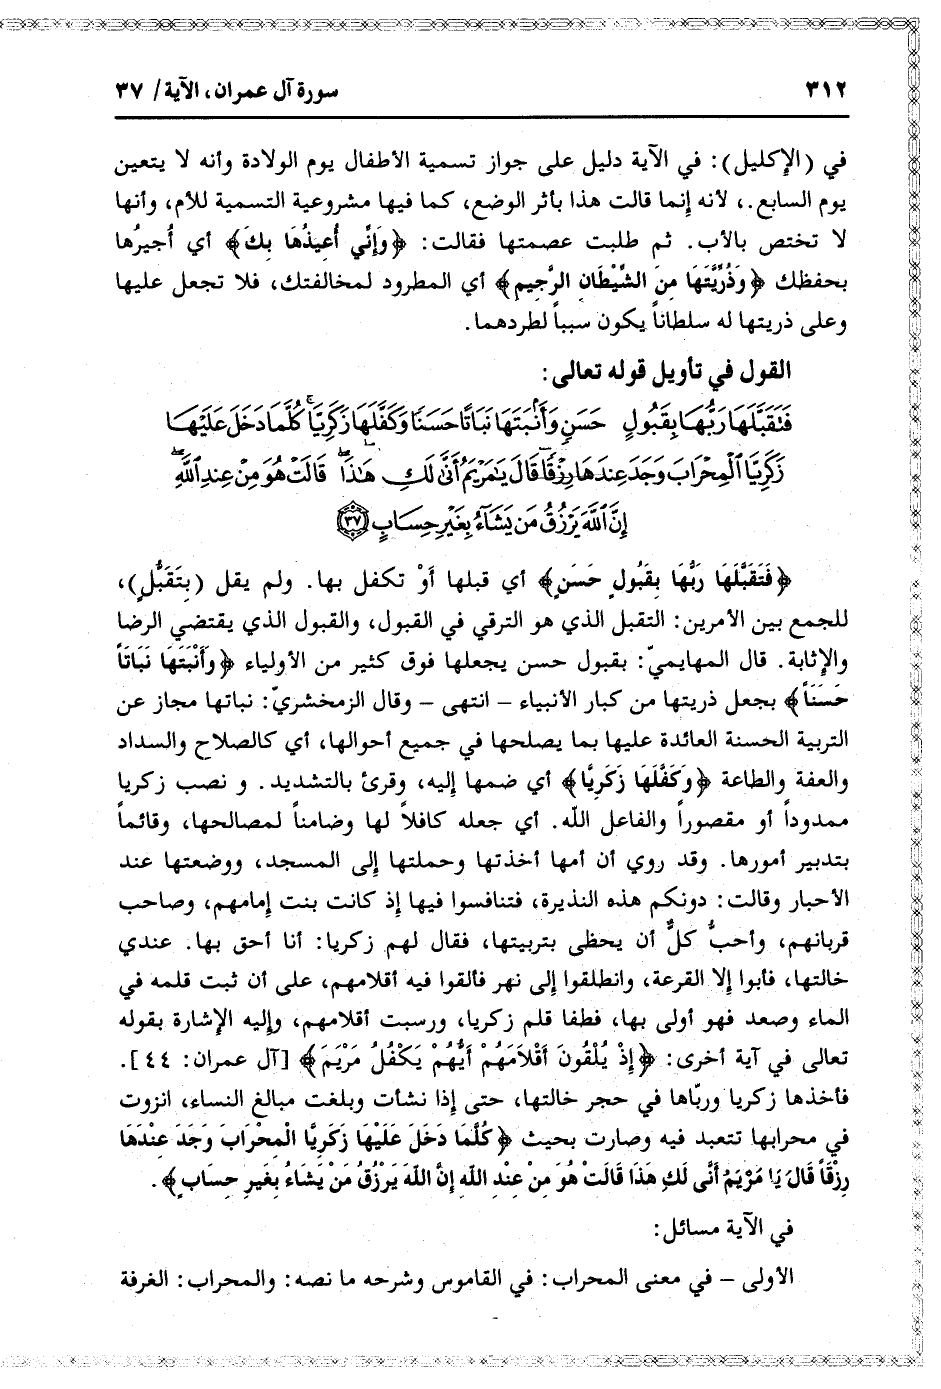 ٣١٢ سورة آل عمران، الآية/ ٣٧
في (الإكليل): في الآية دليل على جواز تسمية الأطفال يوم الولادة وأنه لا يتعين
يوم السابع.، لأنه إنما قالت هذا بأثر الوضع، كما فيها مشروعية التسمية للأم، وأنها
لا تختص بالأب. ثم طلبت عصمتها فقالت: ﴿وَإِنِّي أُعِيذُهَا بِكَ﴾ أي أُجيرُها
بحفظك ﴿وَذُرِّيَّتَهَا مِنَ الشَّيْطَانِ الرَّجِيمِ﴾ أي المطرود لمخالفتك، فلا تجعل عليها
وعلى ذريتها له سلطاناً يكون سبباً لطردهما.
القول في تأويل قوله تعالى:
فَتَقَبَّلَهَا رَبُّهَا بِقَبُولٍ حَسَنٍ وَأَنْبَتَهَا نَبَاتًا حَسَنًا وَكَفَّلَهَا زَكَرِيَّا ۖ كُلَّمَا دَخَلَ عَلَيْهَا
زَكَرِيَّا ٱلْمِحْرَابَ وَجَدَ عِندَهَا رِزْقًا ۖ قَالَ يَٰمَرْيَمُ أَنَّىٰ لَكِ هَٰذَا ۖ قَالَتْ هُوَ مِنْ عِندِ ٱللَّهِ ۖ
إِنَّ ٱللَّهَ يَرْزُقُ مَن يَشَآءُ بِغَيْرِ حِسَابٍ ﴿٣٧﴾
﴿فَتَقَبَّلَهَا رَبُّهَا بِقَبُولٍ حَسَنٍ﴾ أي قبلها أوْ تكفل بها. ولم يقل (بِتَقَبُّلٍ)،
للجمع بين الأمرين: التقبل الذي هو الترقي في القبول، والقبول الذي يقتضي الرضا
والإثابة. قال المهايميّ: بقبول حسن يجعلها فوق كثير من الأولياء ﴿وَأَنْبَتَهَا نَبَاتاً
حَسَناً﴾ بجعل ذريتها من كبار الأنبياء – انتهى – وقال الزمخشريّ: نباتها مجاز عن
التربية الحسنة العائدة عليها بما يصلحها في جميع أحوالها، أي كالصلاح والسداد
والعفة والطاعة ﴿وَكَفَّلَهَا زَكَرِيَّا﴾ أي ضمها إليه، وقرئ بالتشديد. و نصب زكريا
ممدوداً أو مقصوراً والفاعل اللّه. أي جعله كافلاً لها وضامناً لمصالحها، وقائماً
بتدبير أمورها. وقد روي أن أمها أخذتها وحملتها إلى المسجد، ووضعتها عند
الأحبار وقالت: دونكم هذه النذيرة، فتنافسوا فيها إذ كانت بنت إمامهم، وصاحب
قربانهم، وأحبُّ كلٌّ أن يحظى بتربيتها، فقال لهم زكريا: أنا أحق بها. عندي
خالتها، فأبوا إلا القرعة، وانطلقوا إلى نهر فألقوا فيه أقلامهم، على أن ثبت قلمه في
الماء وصعد فهو أولى بها، فطفا قلم زكريا، ورسبت أقلامهم، وإليه الإشارة بقوله
تعالى في آية أخرى: ﴿إِذْ يُلْقُونَ أَقْلاَمَهُمْ أَيُّهُمْ يَكْفُلُ مَرْيَمَ﴾ [آل عمران: ٤٤].
فأخذها زكريا وربّاها في حجر خالتها، حتى إذا نشأت وبلغت مبالغ النساء، انزوت
في محرابها تتعبد فيه وصارت بحيث ﴿كُلَّمَا دَخَلَ عَلَيْهَا زَكَرِيَّا الْمِحْرَابَ وَجَدَ عِنْدَهَا
رِزْقاً قَالَ يَا مَرْيَمُ أَنَّى لَكِ هَذَا قَالَتْ هُوَ مِنْ عِنْدِ اللّهِ إِنَّ اللّهَ يَرْزُقُ مَنْ يَشَاءُ بِغَيرِ حِسَابٍ﴾.
في الآية مسائل:
الأولى – في معنى المحراب: في القاموس وشرحه ما نصه: والمحراب: الغرفة